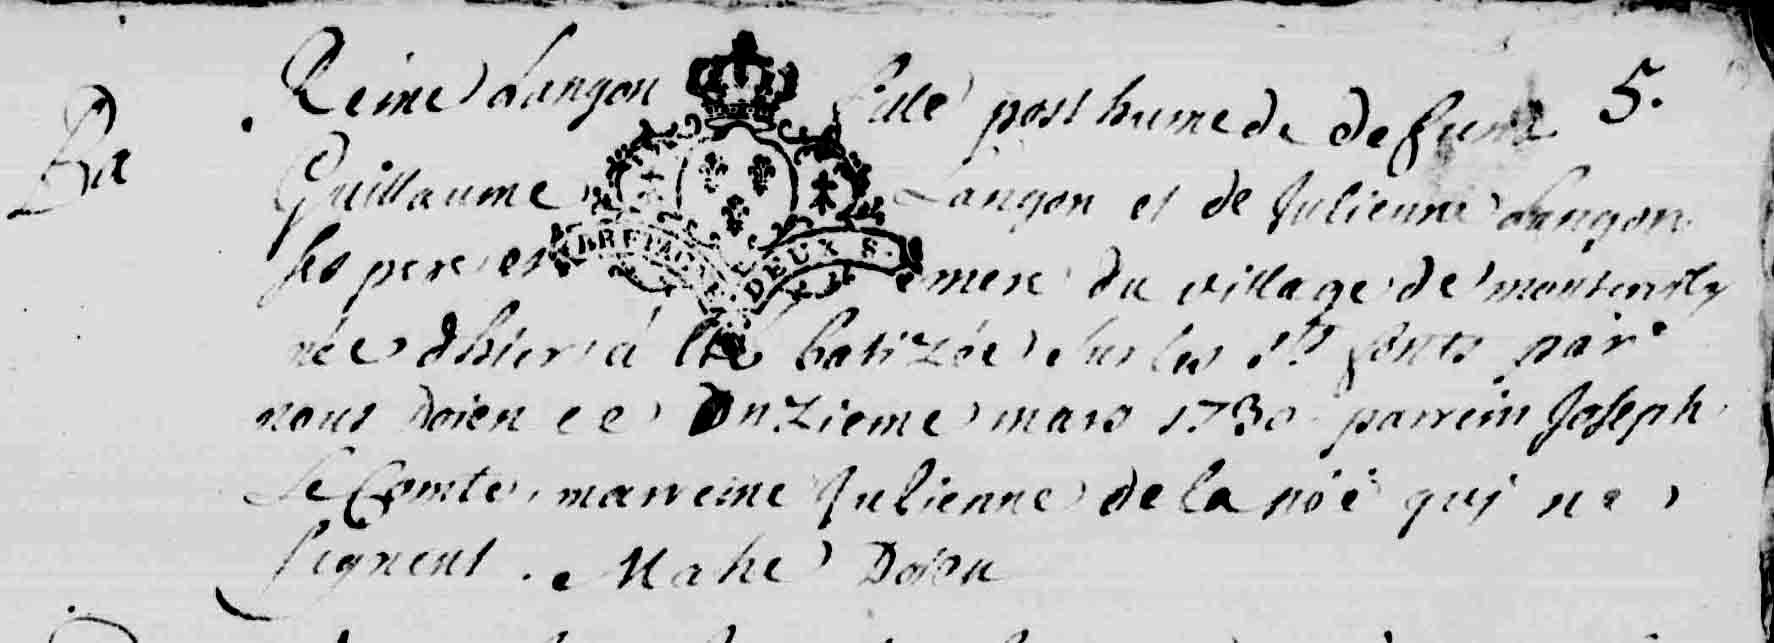 Reine Langon fille posthume de defunt 5.
Ba Guillaume Langon et de Julienne Langon
ses pere et mere du village de
BRETAGNE DEUX S.
née dhier a été batizée sur les sts fonts par
nous Doien ce Onzieme mars 1730 parrein Joseph
Le Comte, marreine Julienne de la noë qui ne
signent. Mahé Doïen